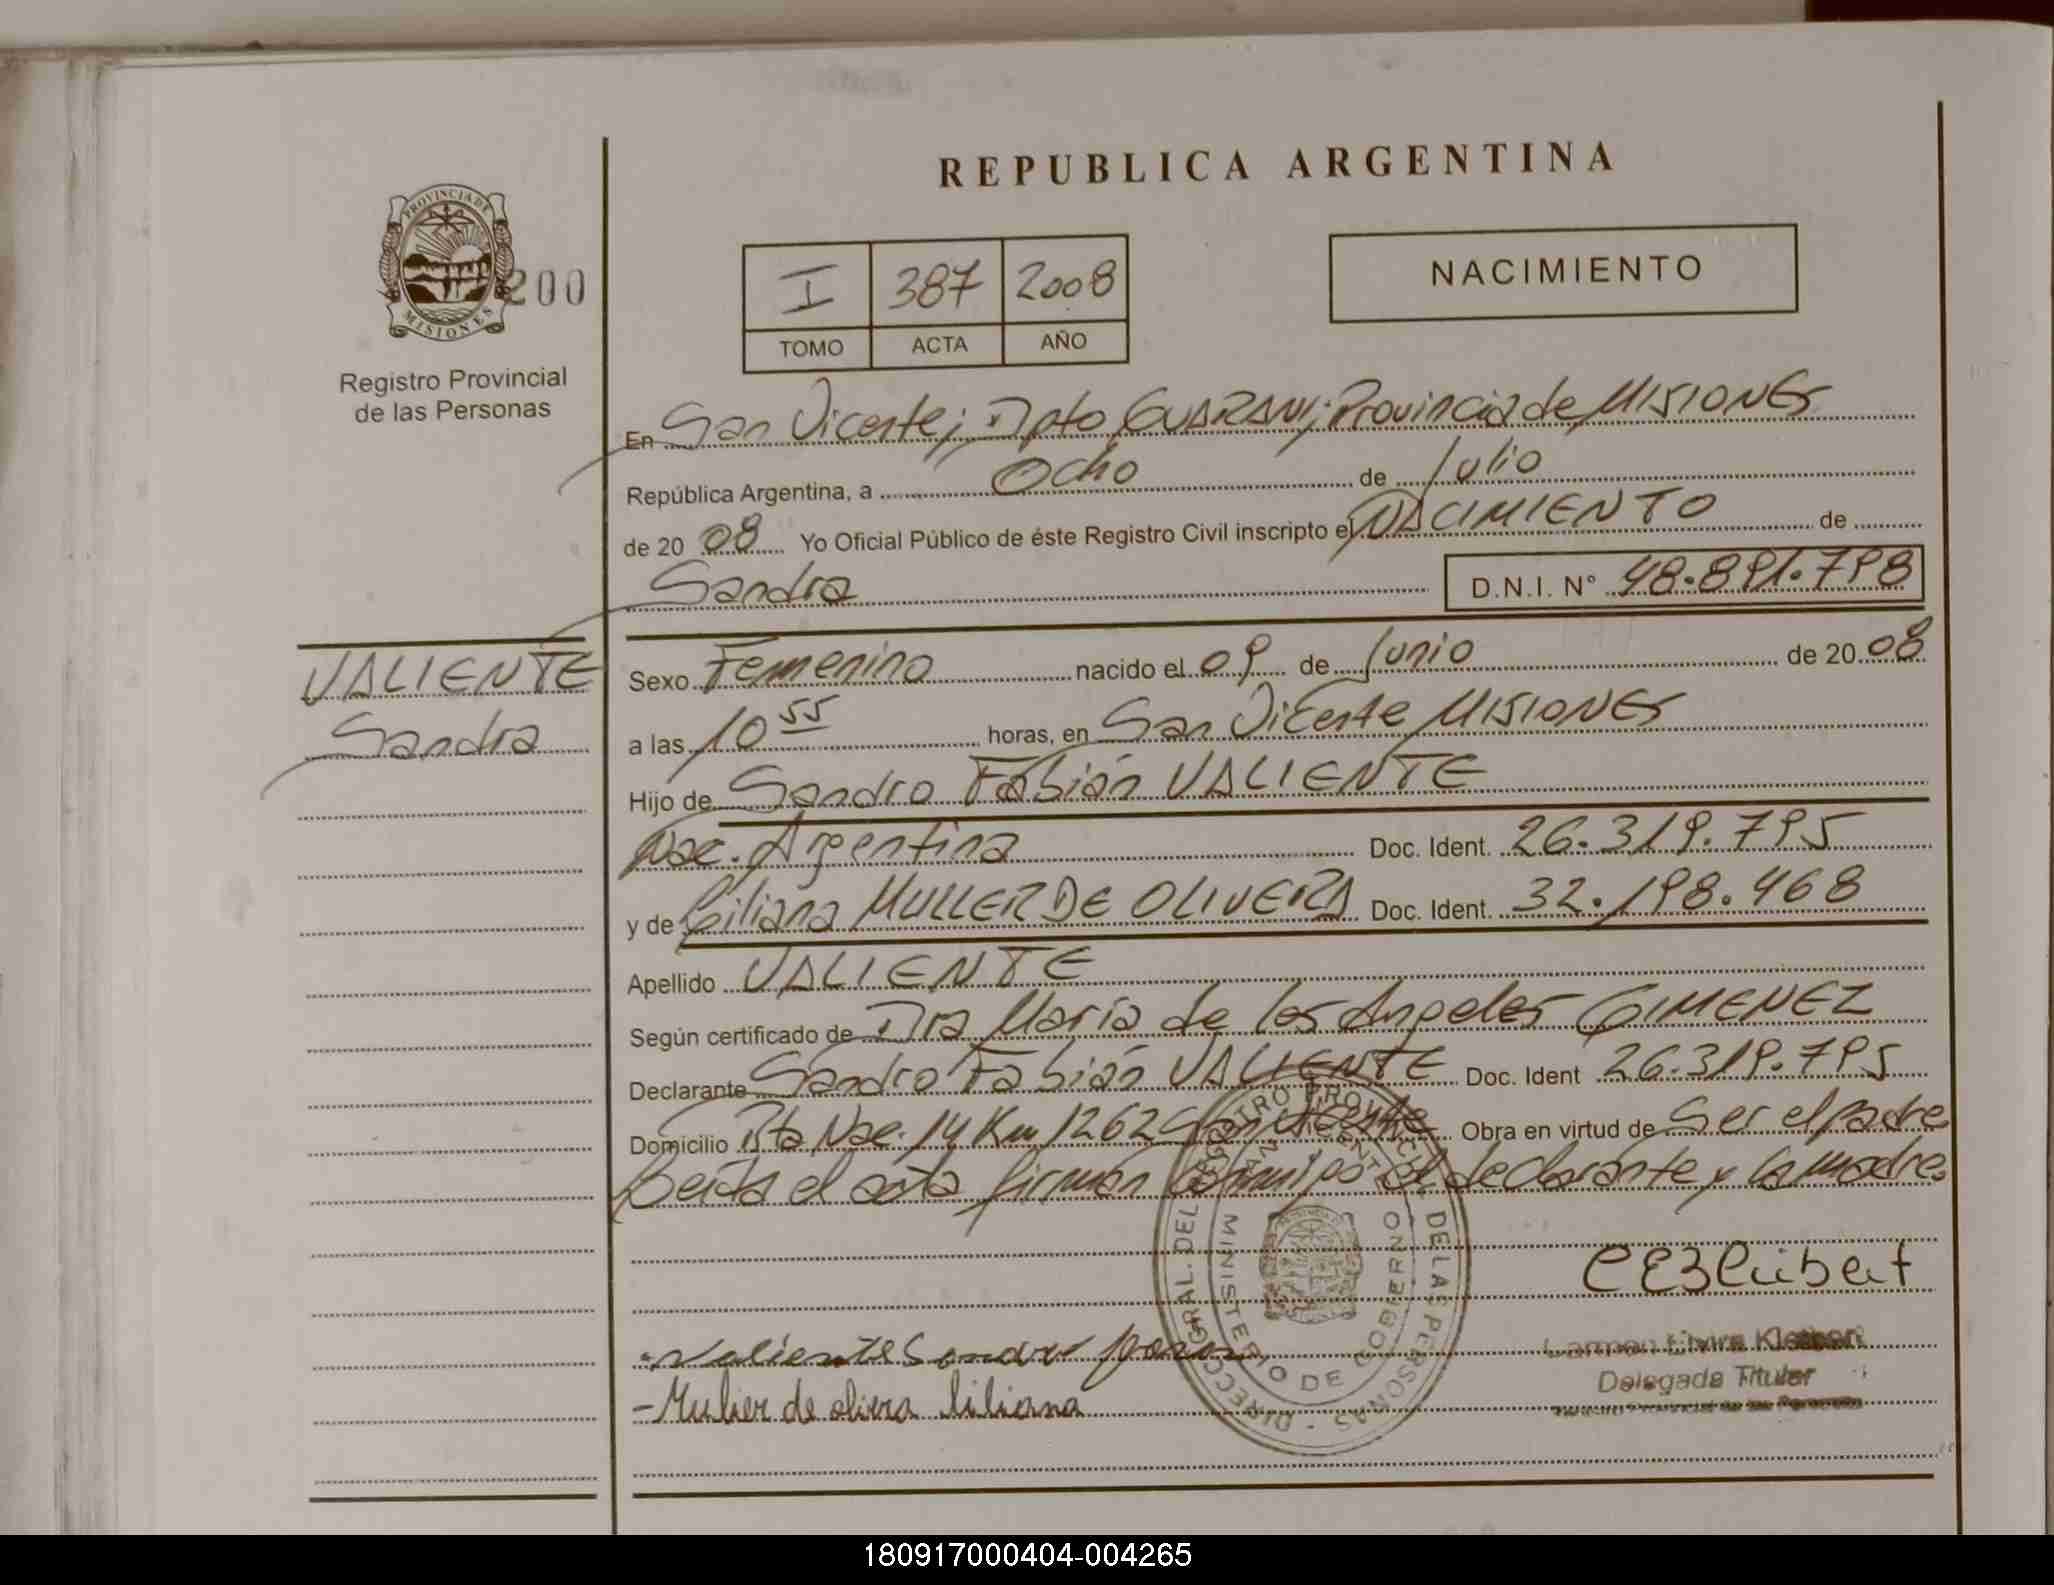 REPUBLICA ARGENTINA
PROVINCIA DE
MISIONES
200
Registro Provincial
de las Personas
I 387 2008
TOMO ACTA AÑO
NACIMIENTO
En San Vicente; Dpto GUARANI; Provincia de MISIONES
República Argentina, a Ocho de Julio
de 2008 Yo Oficial Público de éste Registro Civil inscripto el NACIMIENTO de
Sandra D.N.I. N° 48.891.798
VALIENTE
Sandra
Sexo Femenino nacido el 09 de Junio de 2008
a las 10 55 horas, en San Vicente MISIONES
Hijo de Sandro Fabián VALIENTE
Nac. Argentina Doc. Ident. 26.319.795
y de Liliana MULLER DE OLIVERA Doc. Ident. 32.198.468
Apellido VALIENTE
Según certificado de Dra María de los Angeles GIMENEZ
Declarante Sandro Fabián VALIENTE Doc. Ident 26.319.795
Domicilio Rta Nac. 14 Km 1262 San Vicente Obra en virtud de Ser el padre
Leída el acta firman conmigo el declarante y la madre
DIRECC. GRAL. DEL REGISTRO PROVINCIAL DE LAS PERSONAS
MINISTERIO DE GOBIERNO
Valiente Sandro
- Muller de olivera liliana
Carmen Elvira
Delegada Titular
Registro Provincial de las Personas
180917000404-004265